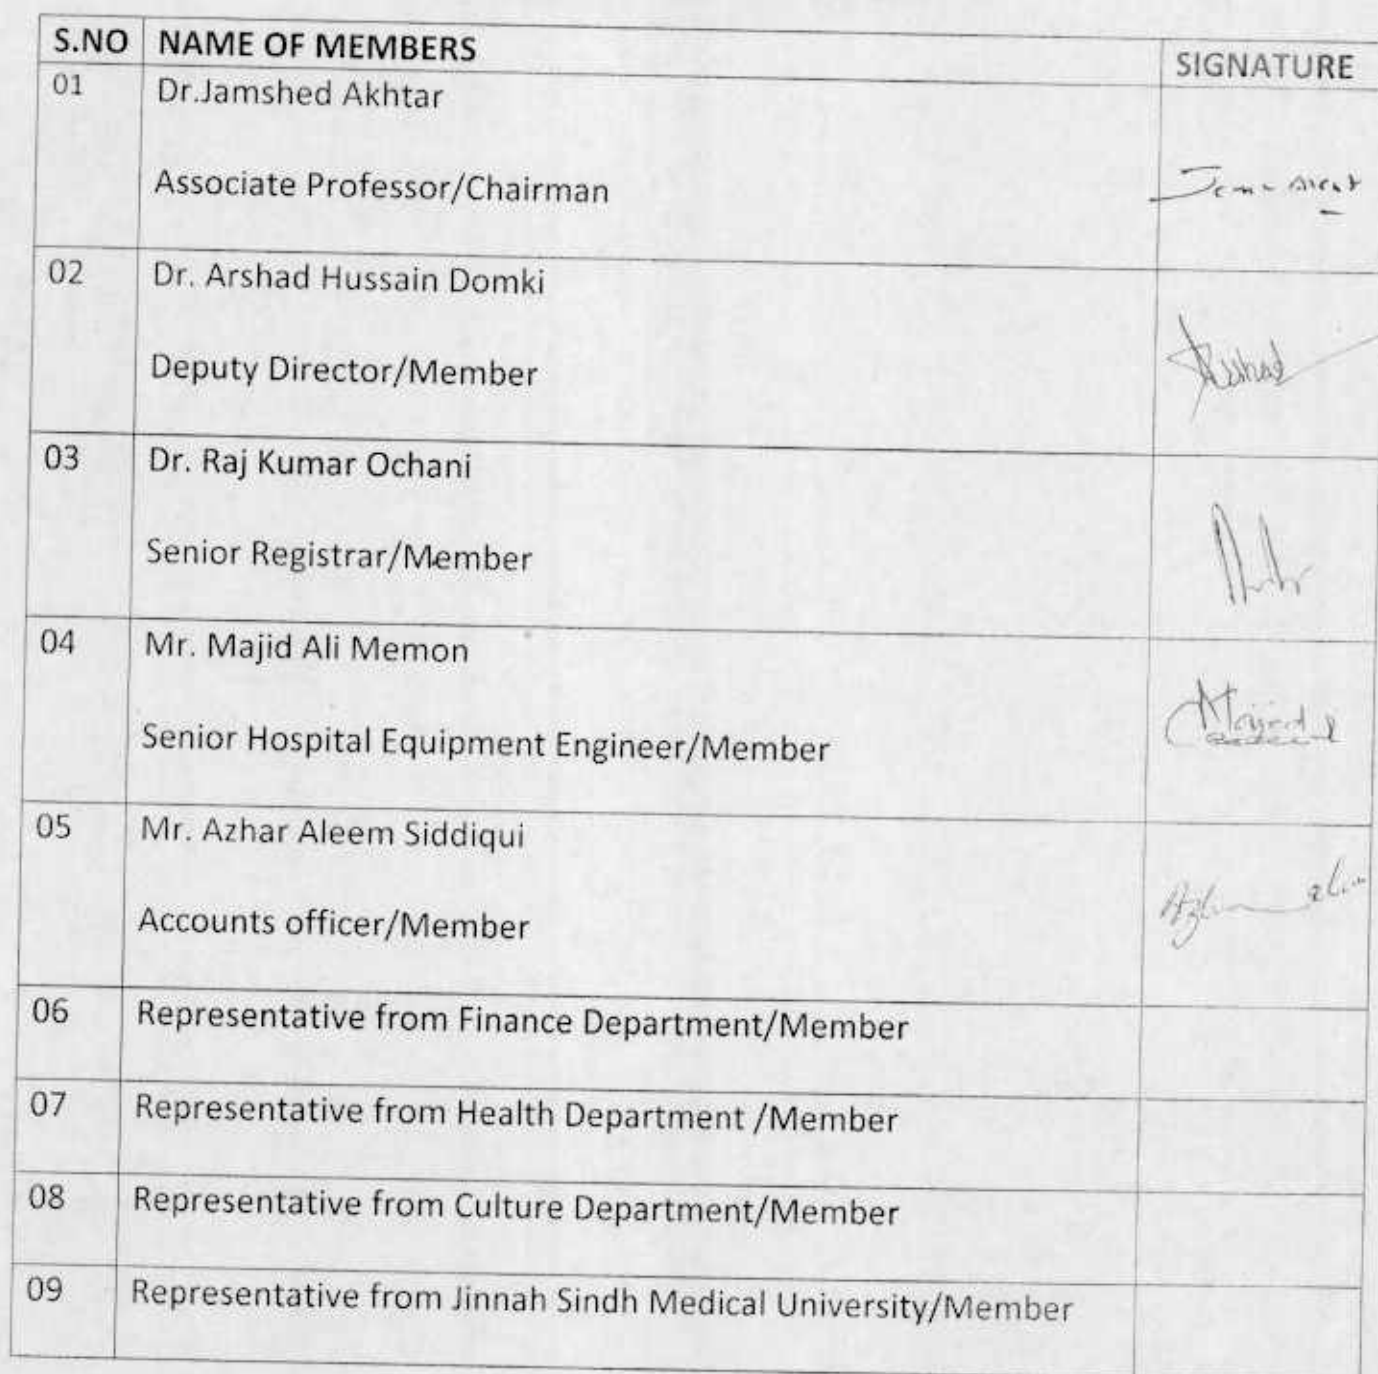 S.NO NAME OF MEMBERS SIGNATURE
01 Dr.Jamshed Akhtar
Associate Professor/Chairman
02 Dr. Arshad Hussain Domki
Deputy Director/Member
Arshad
03 Dr. Raj Kumar Ochani
Senior Registrar/Member
04 Mr. Majid Ali Memon
Senior Hospital Equipment Engineer/Member
Majid
05 Mr. Azhar Aleem Siddiqui
Accounts officer/Member
06 Representative from Finance Department/Member
07 Representative from Health Department /Member
08 Representative from Culture Department/Member
09 Representative from Jinnah Sindh Medical University/Member